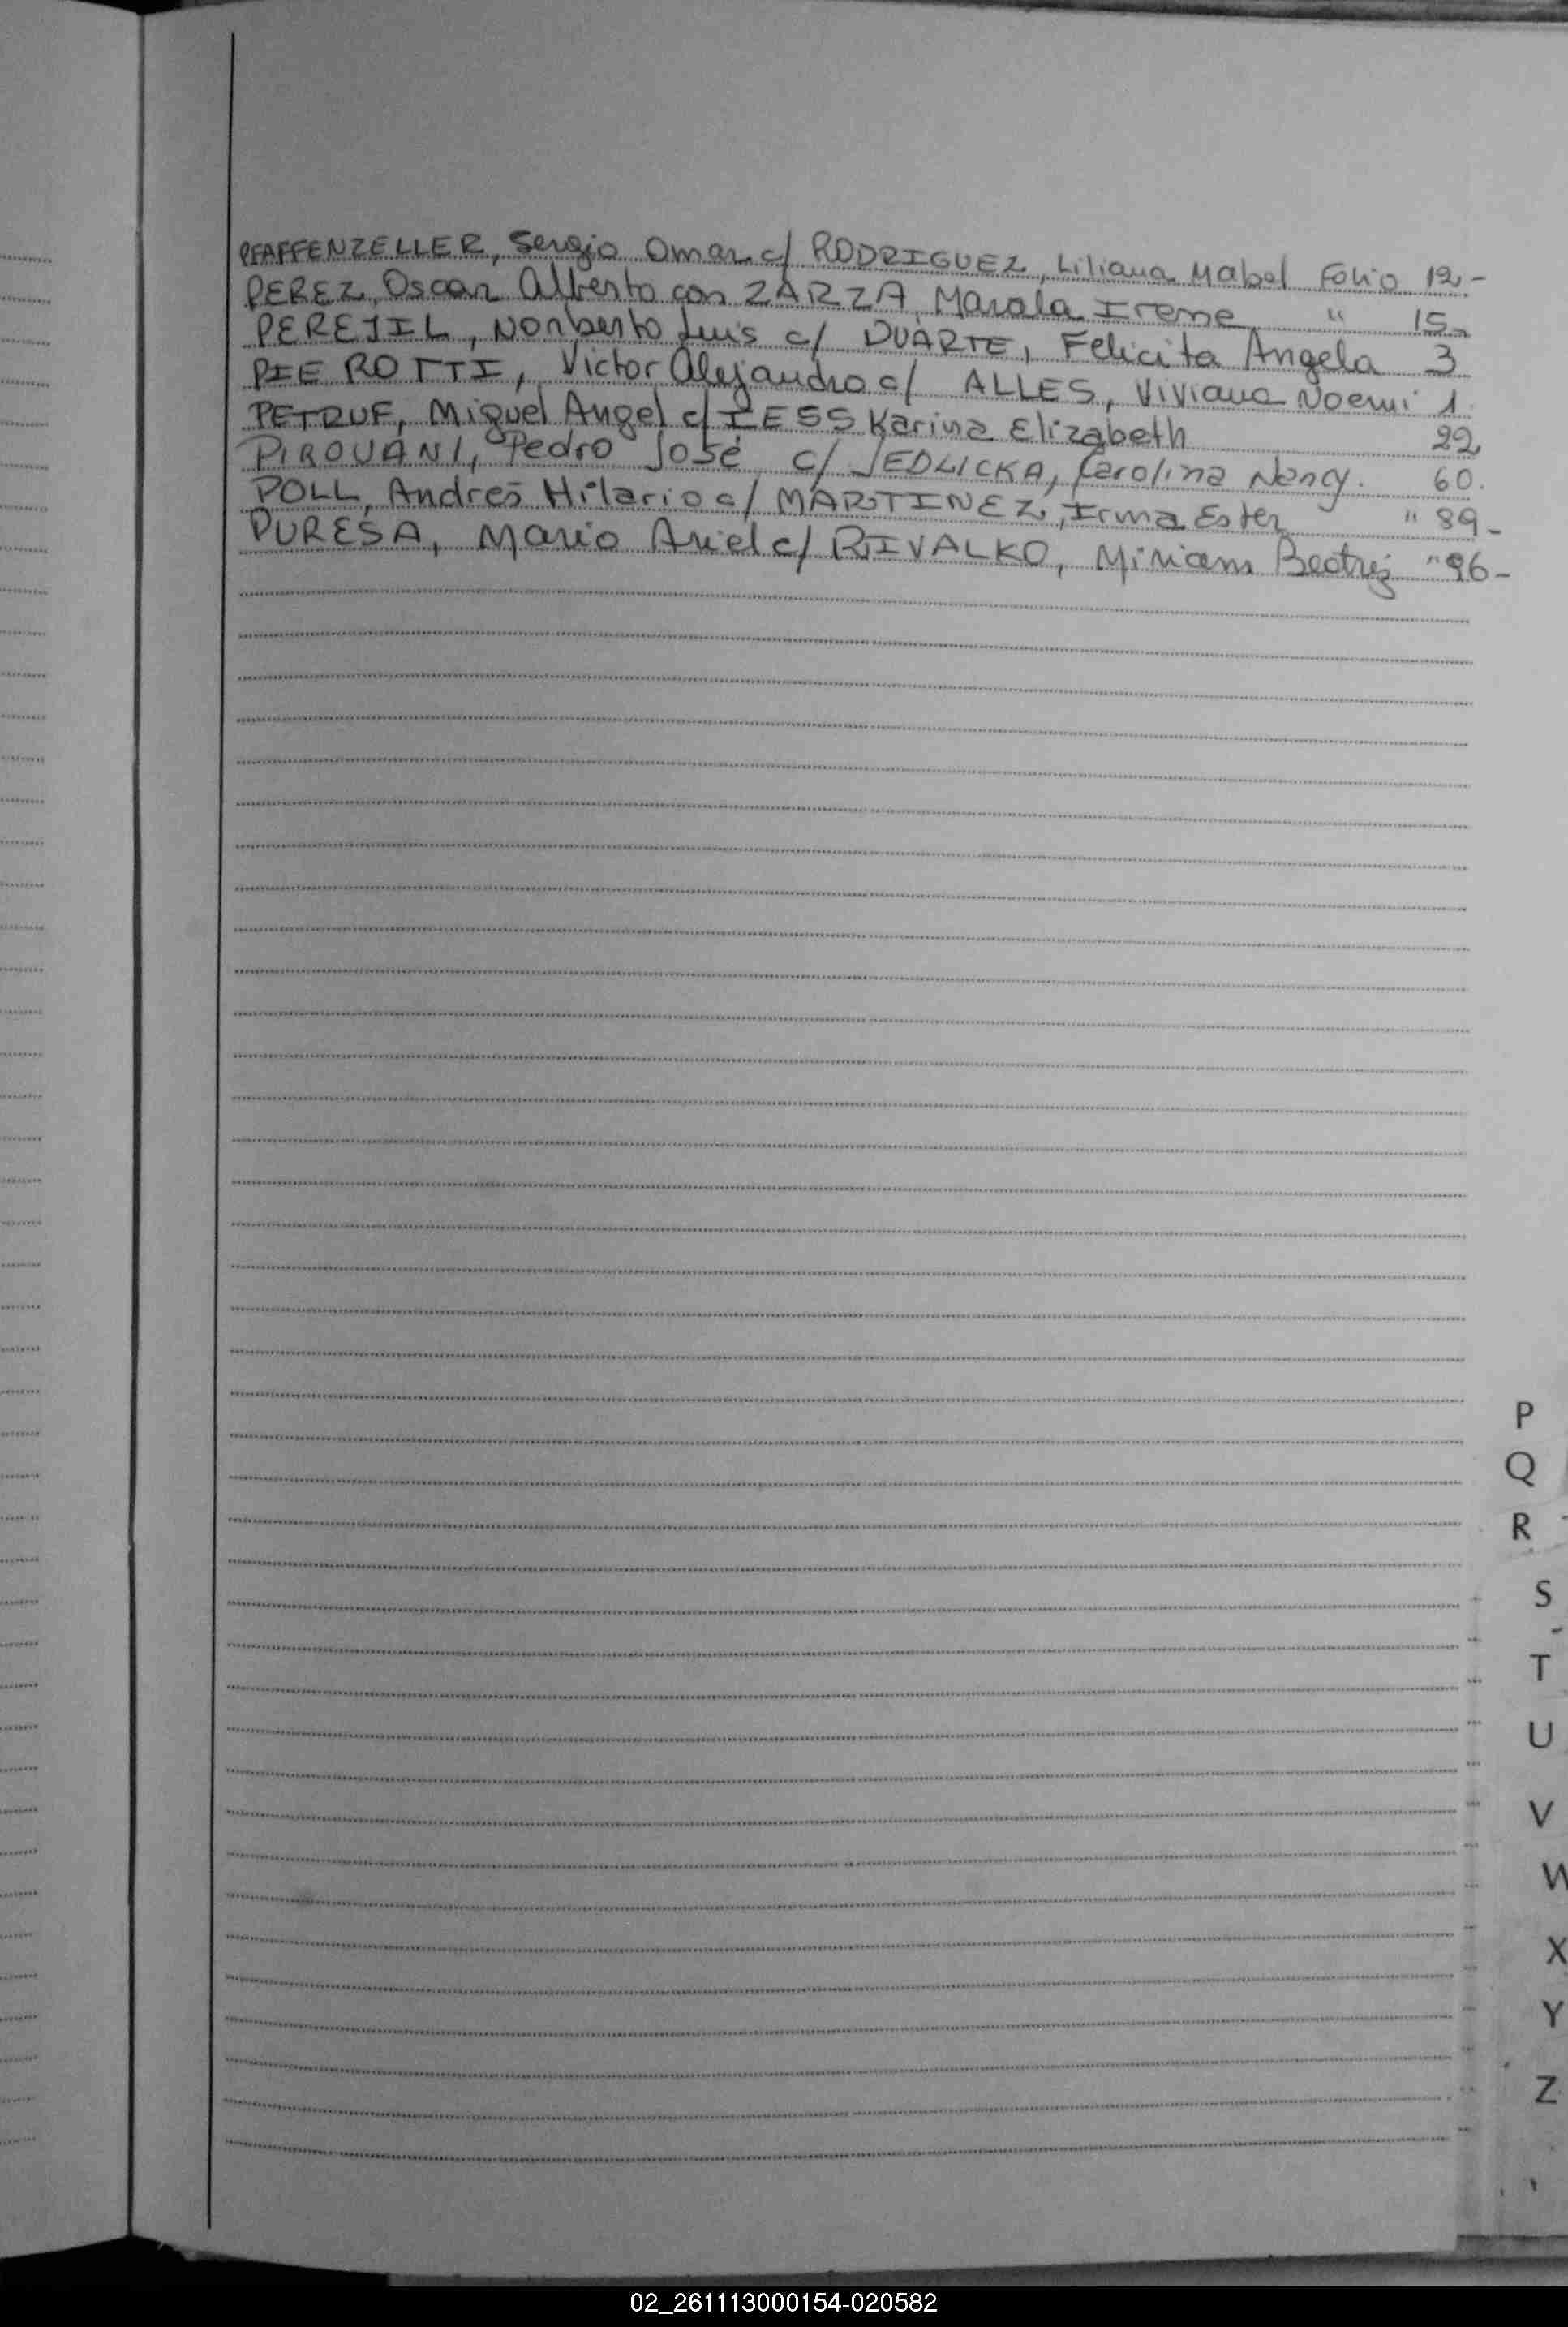 PFAFFENZELLER, Sergio Omar c/ RODRIGUEZ, Liliana Mabel Folio 12.-
PEREZ, Oscar Alberto con ZARZA, Mariola Irene " 15.-
PEREJIL, Norberto Luis c/ DUARTE, Felicita Angela 3
PIEROTTI, Victor Alejandro c/ ALLES, Viviana Noemi 1.
PETRUF, Miguel Angel c/ IESS Karina Elizabeth 22
PIROVANI, Pedro José c/ JEDLICKA, Carolina Nancy. 60.
POLL, Andres Hilario c/ MARTINEZ, Irma Ester " 89-
PURESA, Mario Ariel c/ RIVALKO, Miriam Beatriz " 96-
P
Q
R
S
T
U
V
W
X
Y
Z
02_261113000154-020582